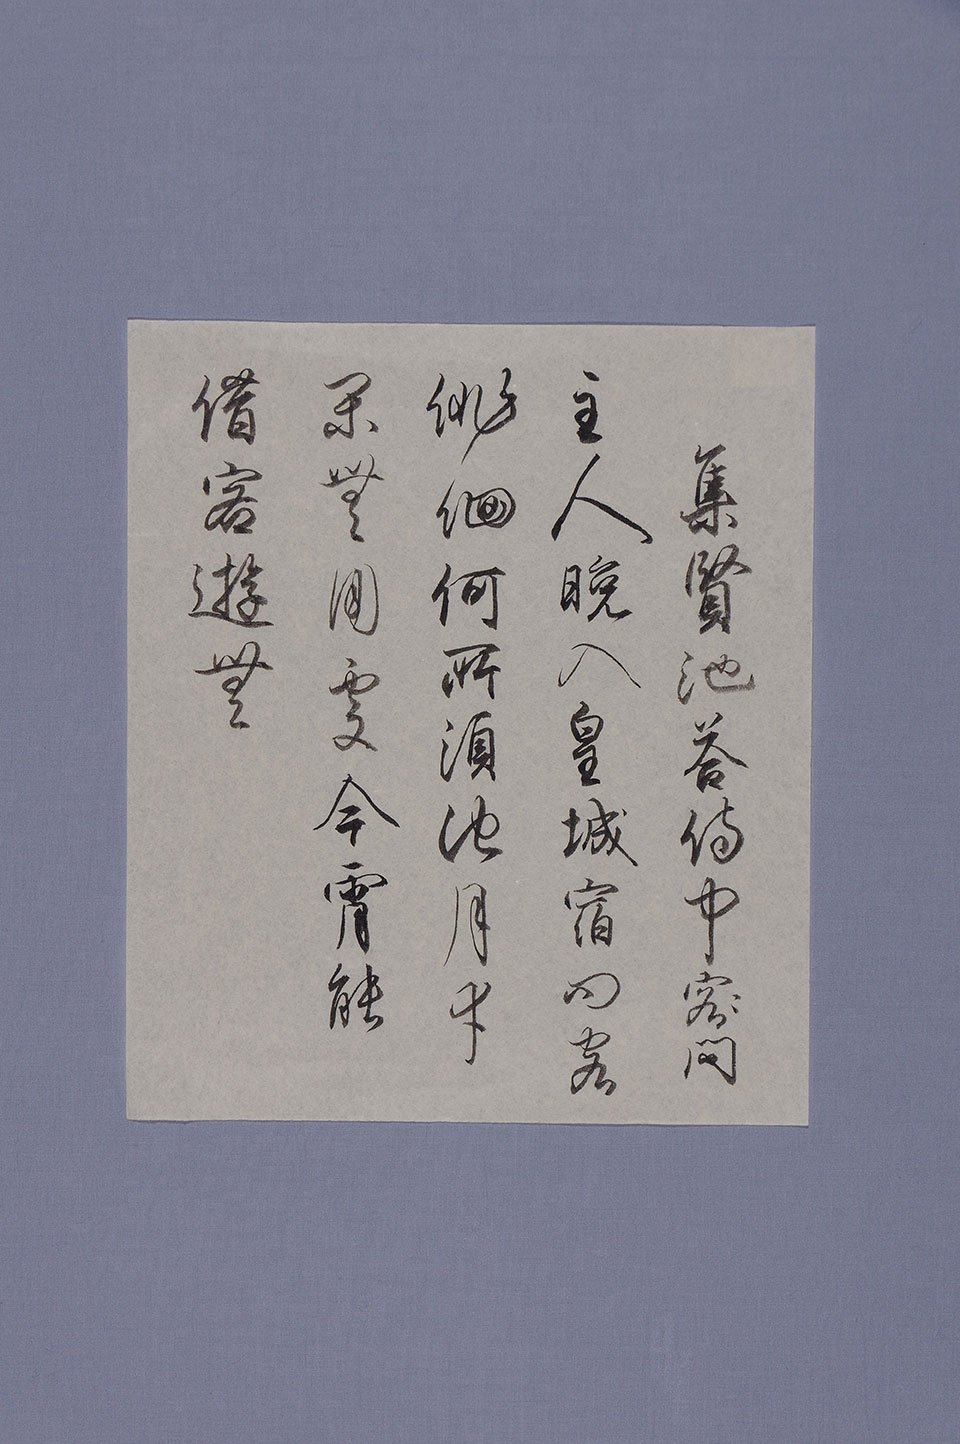 集賢池答侍中客問
主人晚入皇城宿問客
徘徊何所須池月幸
閑無用處今霄能
借客遊無